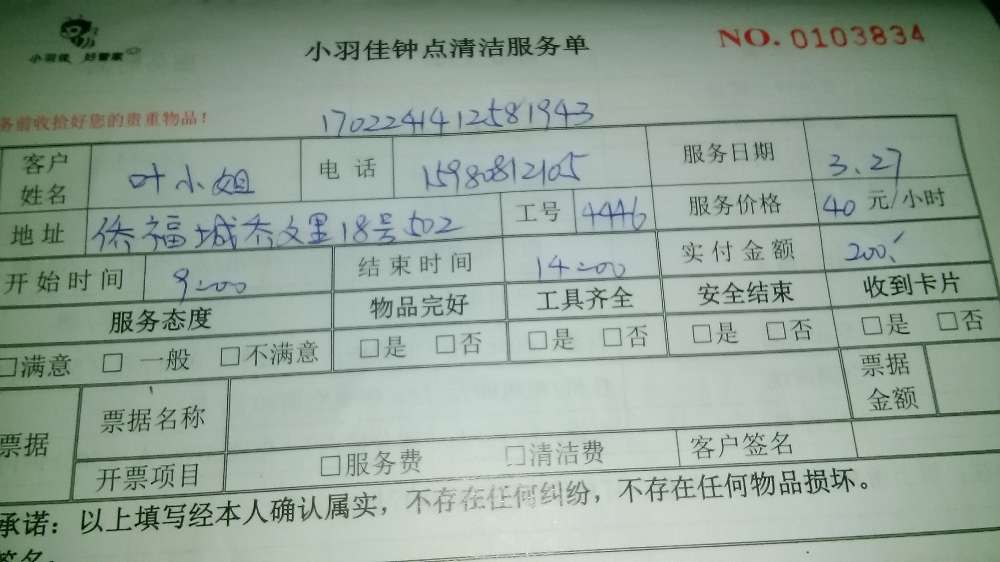 小羽佳 好管家
小羽佳钟点清洁服务单
NO. 0103834
务前收拾好您的贵重物品！
1702241412581943
客户姓名 叶小姐 电话 15980812105 服务日期 3.27
地址 侨福城乔文里18号502 工号 4446 服务价格 40 元/小时
开始时间 9:00 结束时间 14:00 实付金额 200
服务态度 物品完好 工具齐全 安全结束 收到卡片
□满意 □一般 □不满意 □是 □否 □是 □否 □是 □否 □是 □否
票据 票据名称 票据金额
开票项目 □服务费 □清洁费 客户签名
承诺：以上填写经本人确认属实，不存在任何纠纷，不存在任何物品损坏。